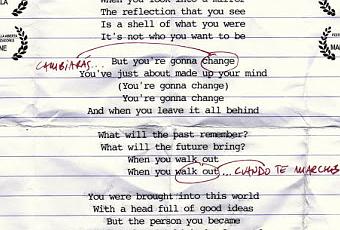 When you look into a mirror
The reflection that you see
Is a shell of what you were
It's not who you want to be
But you're gonna change
CAMBIARÁS...
You've just about made up your mind
(You're gonna change)
You're gonna change
And when you leave it all behind
What will the past remember?
What will the future bring?
When you walk out
When you walk out ...CUANDO TE MARCHES
You were brought into this world
With a head full of good ideas
But the person you became